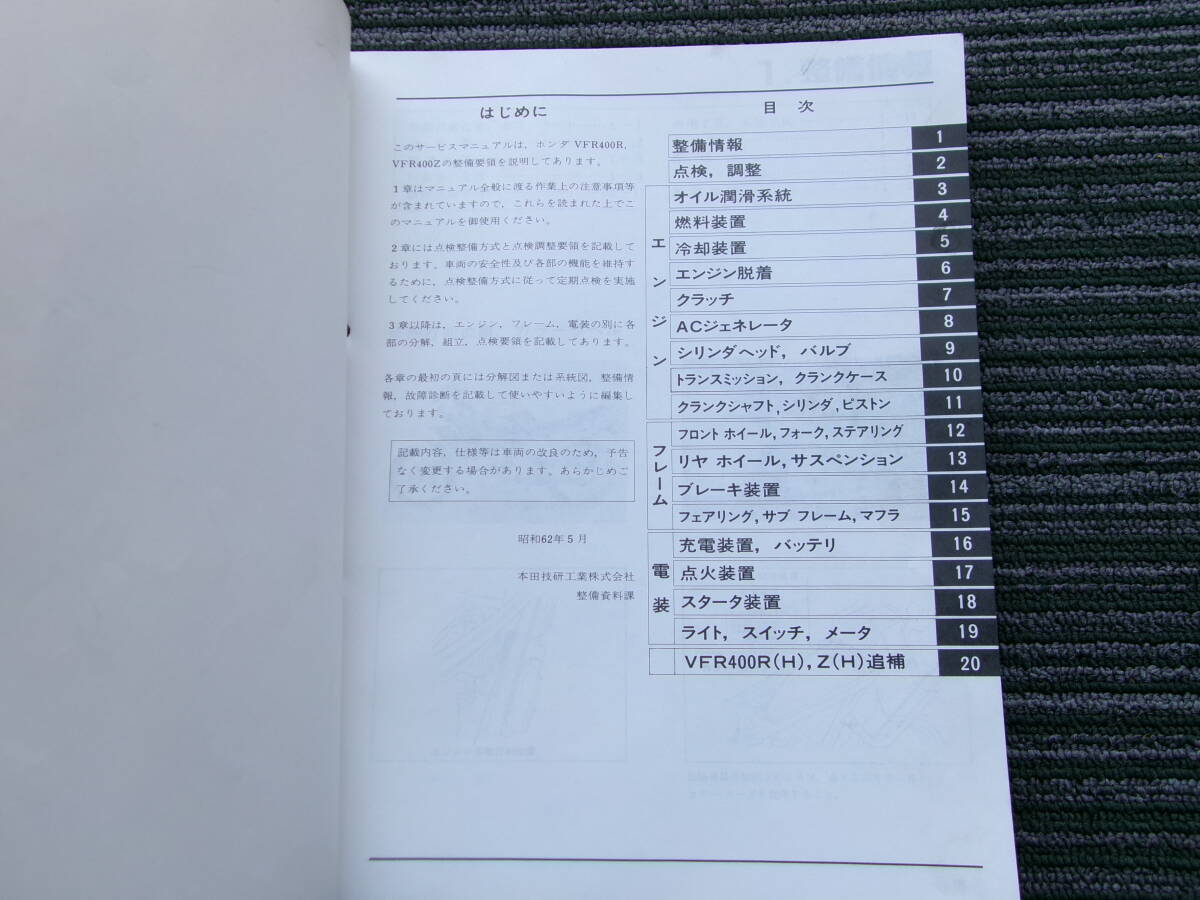 はじめに
このサービスマニュアルは、ホンダ VFR400R,
VFR400Zの整備要領を説明してあります。
1章はマニュアル全般に渡る作業上の注意事項等
が含まれていますので、これらを読まれた上でこ
のマニュアルを御使用ください。
2章には点検整備方式と点検調整要領を記載して
おります。車両の安全性及び各部の機能を維持す
るために、点検整備方式に従って定期点検を実施
してください。
3章以降は、エンジン、フレーム、電装の別に各
部の分解、組立、点検要領を記載してあります。
各章の最初の頁には分解図または系統図、整備情
報、故障診断を記載して使いやすいように編集し
ております。
記載内容、仕様等は車両の改良のため、予告
なく変更する場合があります。あらかじめご
了承ください。
昭和62年5月
本田技研工業株式会社
整備資料課
目 次
整備情報 1
点検, 調整 2
エンジン
オイル潤滑系統 3
燃料装置 4
冷却装置 5
エンジン脱着 6
クラッチ 7
ACジェネレータ 8
シリンダヘッド, バルブ 9
トランスミッション, クランクケース 10
クランクシャフト, シリンダ, ピストン 11
フレーム
フロント ホイール, フォーク, ステアリング 12
リヤ ホイール, サスペンション 13
ブレーキ装置 14
フェアリング, サブ フレーム, マフラ 15
電装
充電装置, バッテリ 16
点火装置 17
スタータ装置 18
ライト, スイッチ, メータ 19
VFR400R(H), Z(H)追補 20